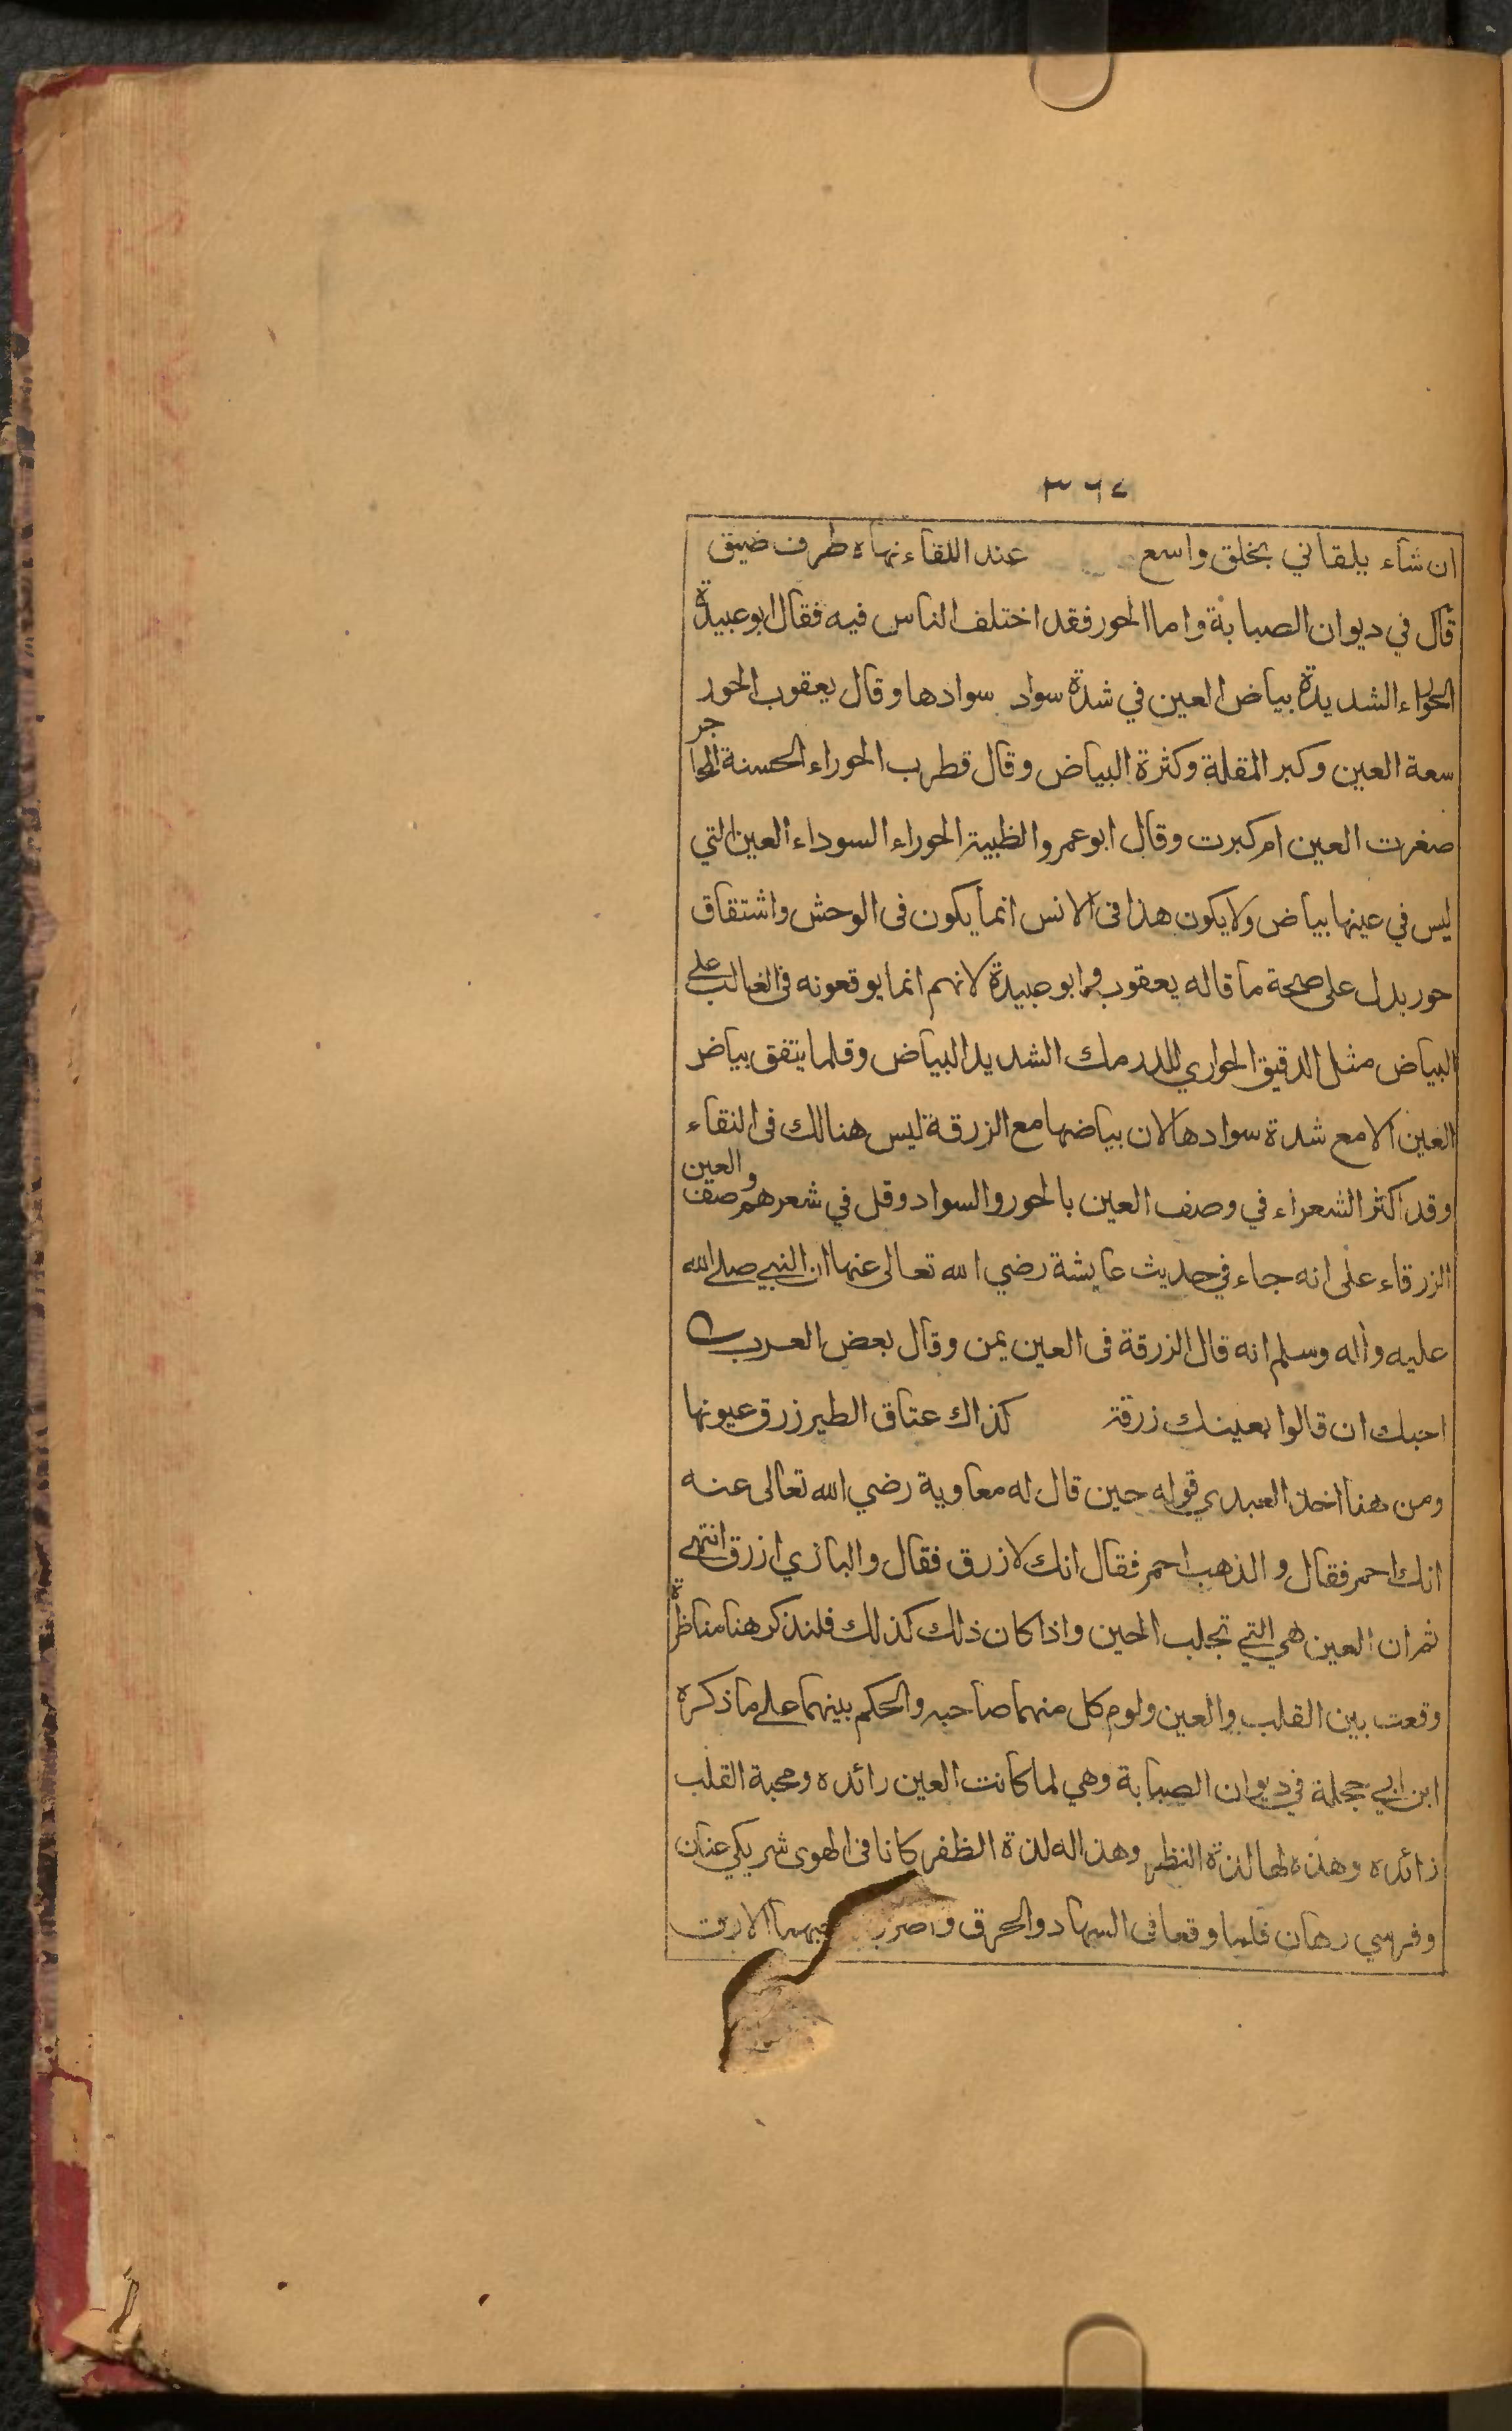 ٣٦٧
ان شاء يلقاني بخلق واسع عند اللقاء نهاه طرف ضيق
قال في ديوان الصبابة واما الحور فقد اختلف الناس فيه فقال ابو عبيدة
الحوراء الشديدة بياض العين في شدة سواد سوادها وقال يعقوب الحور
سعة العين وكبر المقلة وكثرة البياض وقال قطرب الحوراء الحسنة المحاجر
صغرت العين ام كبرت وقال ابو عمرو الظبية الحوراء السوداء العين التي
ليس في عينها بياض ولا يكون هذا في الانس انما يكون في الوحش واشتقاق
حور يدل على صحة ما قاله يعقوب وابو عبيدة لانهم انما يوقعونه في الغالب على
البياض مثل الدقيق الحواري للدرمك الشديد البياض وقلما يتفق بياض
العين الا مع شدة سوادها لان بياضها مع الزرقة ليس هنالك في النقاء
وقد اكثر الشعراء في وصف العين بالحور والسواد وقل في شعرهم وصف العين
الزرقاء على انه جاء في حديث عايشة رضي الله تعالى عنها ان النبي صلى الله
عليه واله وسلم انه قال الزرقة في العين يمن وقال بعض العرب
احبك ان قالوا بعينك زرقة كذاك عتاق الطير زرق عيونها
ومن هنا اخذ العبدي قوله حين قال له معاوية رضي الله تعالى عنه
انك احمر فقال والذهب احمر فقال انك لازرق فقال والبازي ازرق انتهى
ثم ان العين هي التي تجلب الحين واذا كان ذلك كذلك فلنذكر هنا مناظرة
وقعت بين القلب والعين ولوم كل منهما صاحبه والحكم بينهما على ما ذكره
ابن ابي حجلة في ديوان الصبابة وهي لما كانت العين رائده ومحبة القلب
زائده وهذه لها لذة النظر وهذا له لذة الظفر كانا في الهوى شريكي عنان
وفرسي رهان فلما وقعا في السهاد والحرق واضر بهما الارق